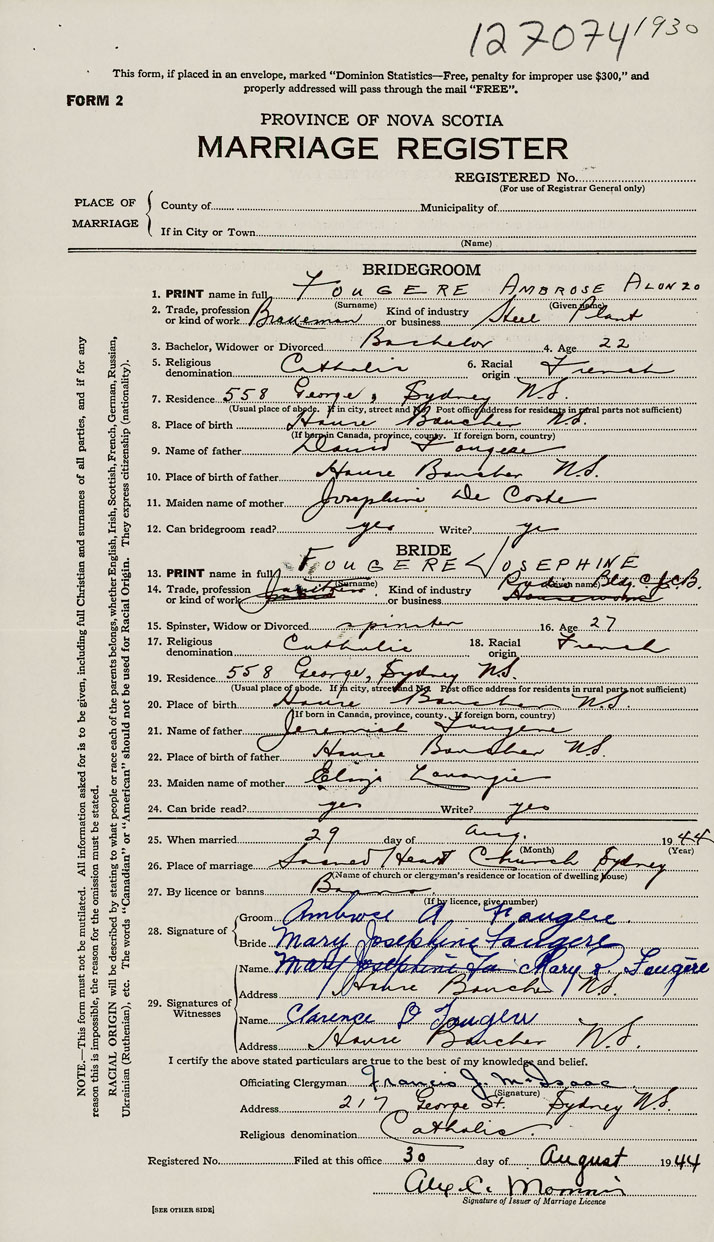 127074 1930
This form, if placed in an envelope, marked “Dominion Statistics—Free, penalty for improper use $300,” and
properly addressed will pass through the mail “FREE”.
FORM 2
PROVINCE OF NOVA SCOTIA
MARRIAGE REGISTER
REGISTERED No.
(For use of Registrar General only)
PLACE OF MARRIAGE
County of Municipality of
If in City or Town
(Name)
BRIDEGROOM
1. PRINT name in full FOUGERE AMBROSE ALONZO
(Surname) (Given name)
2. Trade, profession or kind of work Brakeman Kind of industry or business Steel Plant
3. Bachelor, Widower or Divorced Bachelor 4. Age 22
5. Religious denomination Catholic 6. Racial origin French
7. Residence 558 George, Sydney N.S.
(Usual place of abode. If in city, street and No. Post office address for residents in rural parts not sufficient)
8. Place of birth Havre Boucher N.S.
(If born in Canada, province, county. If foreign born, country)
9. Name of father David Fougere
10. Place of birth of father Havre Boucher N.S.
11. Maiden name of mother Josephine De Coste
12. Can bridegroom read? yes Write? yes
BRIDE
13. PRINT name in full FOUGERE JOSEPHINE
(Surname) (Given name)
14. Trade, profession or kind of work Kind of industry or business Radio Bldg. C.J.C.B.
15. Spinster, Widow or Divorced spinster 16. Age 27
17. Religious denomination Catholic 18. Racial origin French
19. Residence 558 George, Sydney N.S.
(Usual place of abode. If in city, street and No. Post office address for residents in rural parts not sufficient)
20. Place of birth Havre Boucher N.S.
(If born in Canada, province, county. If foreign born, country)
21. Name of father Jeremiah Fougere
22. Place of birth of father Havre Boucher N.S.
23. Maiden name of mother Eliza
24. Can bride read? yes Write? yes
25. When married 29 day of Aug. 1944
(Month) (Year)
26. Place of marriage Sacred Heart Church Sydney
(Name of church or clergyman's residence or location of dwelling house)
27. By licence or banns Banns
(If by licence, give number)
28. Signature of
Groom Ambrose A Fougere
Bride Mary Josephine Fougere
29. Signatures of Witnesses
Name Mary Josephine Fou Mary R. Fougère
Address Havre Boucher N.S.
Name Clarence D Fougere
Address Havre Boucher N.S.
I certify the above stated particulars are true to the best of my knowledge and belief.
Officiating Clergyman Francis J. McIsaac
(Signature)
Address 217 George St. Sydney N.S.
Religious denomination Catholic
Registered No. Filed at this office 30 day of August 1944
Alex C.
Signature of Issuer of Marriage Licence
[SEE OTHER SIDE]
NOTE.—This form must not be mutilated. All information asked for is to be given, including full Christian and surnames of all parties, and if for any
reason this is impossible, the reason for the omission must be stated.
RACIAL ORIGIN will be described by stating to what people or race each of the parents belongs, whether English, Irish, Scottish, French, German, Russian,
Ukrainian (Ruthenian), etc. The words “Canadian” or “American” should not be used for Racial Origin. They express citizenship (nationality).